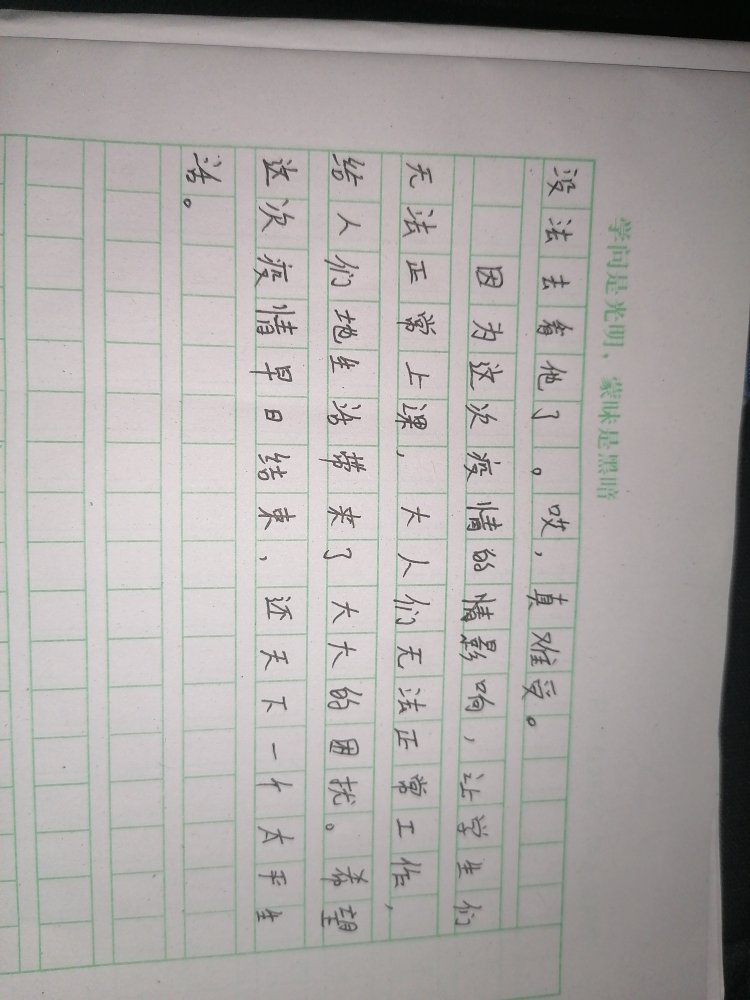 学问是光明，蒙昧是黑暗
没法去看他了。哎，真难受。
因为这次疫情的情影响，让学生们
无法正常上课，大人们无法正常工作，
给人们地生活带来了大大的困扰。希望
这次疫情早日结束，还天下一个太平生
活。